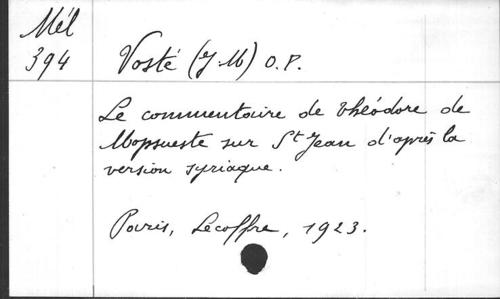 Mél
394
Vosté (J M) O.P.
Le commentaire de Théodore de
Mopsueste sur St Jean d'après la
version syriaque.
Paris, Lecoffre, 1923.